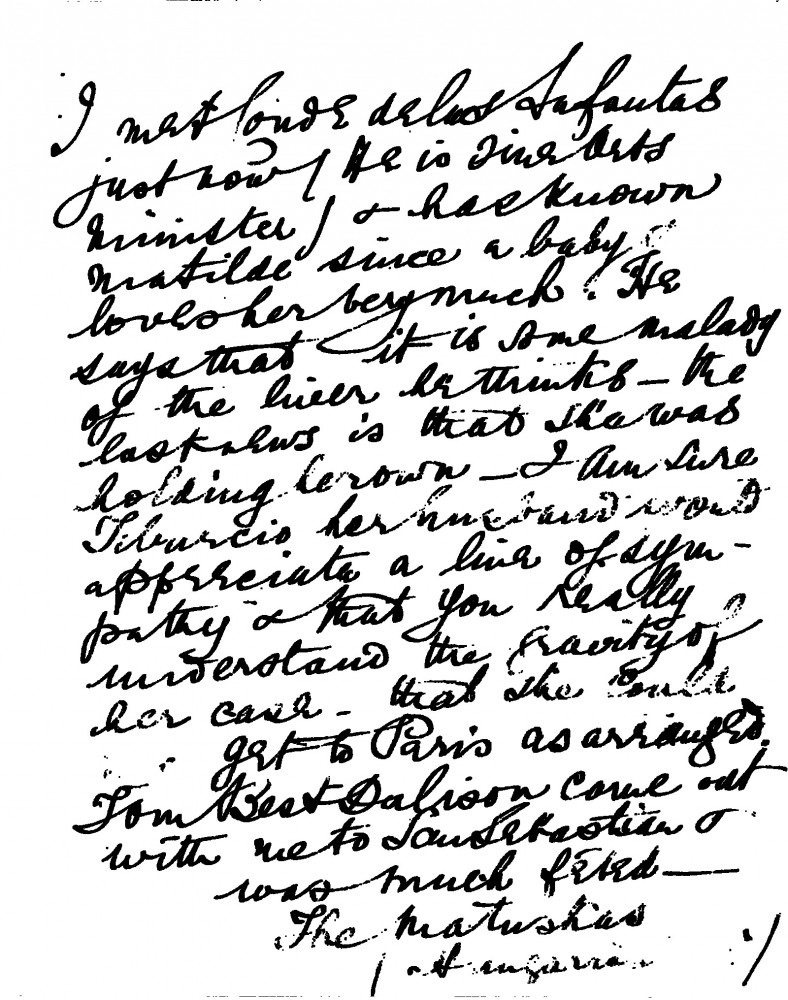 I met Conde de las Infantas
just now ( He is Fine Arts
Minister ) & has known
Matilde since a baby &
loves her very much. He
says that it is some malady
of the liver he thinks – the
last news is that she was
holding her own – I am sure
Tiburcio her husband would
appreciate a line of sym-
pathy & that you really
understand the gravity of
her case – that she could
get to Paris as arranged.
Tom Best Dalison came out
with me to San Sebastian &
was much feted —
The Matuskas
( Hungarian )